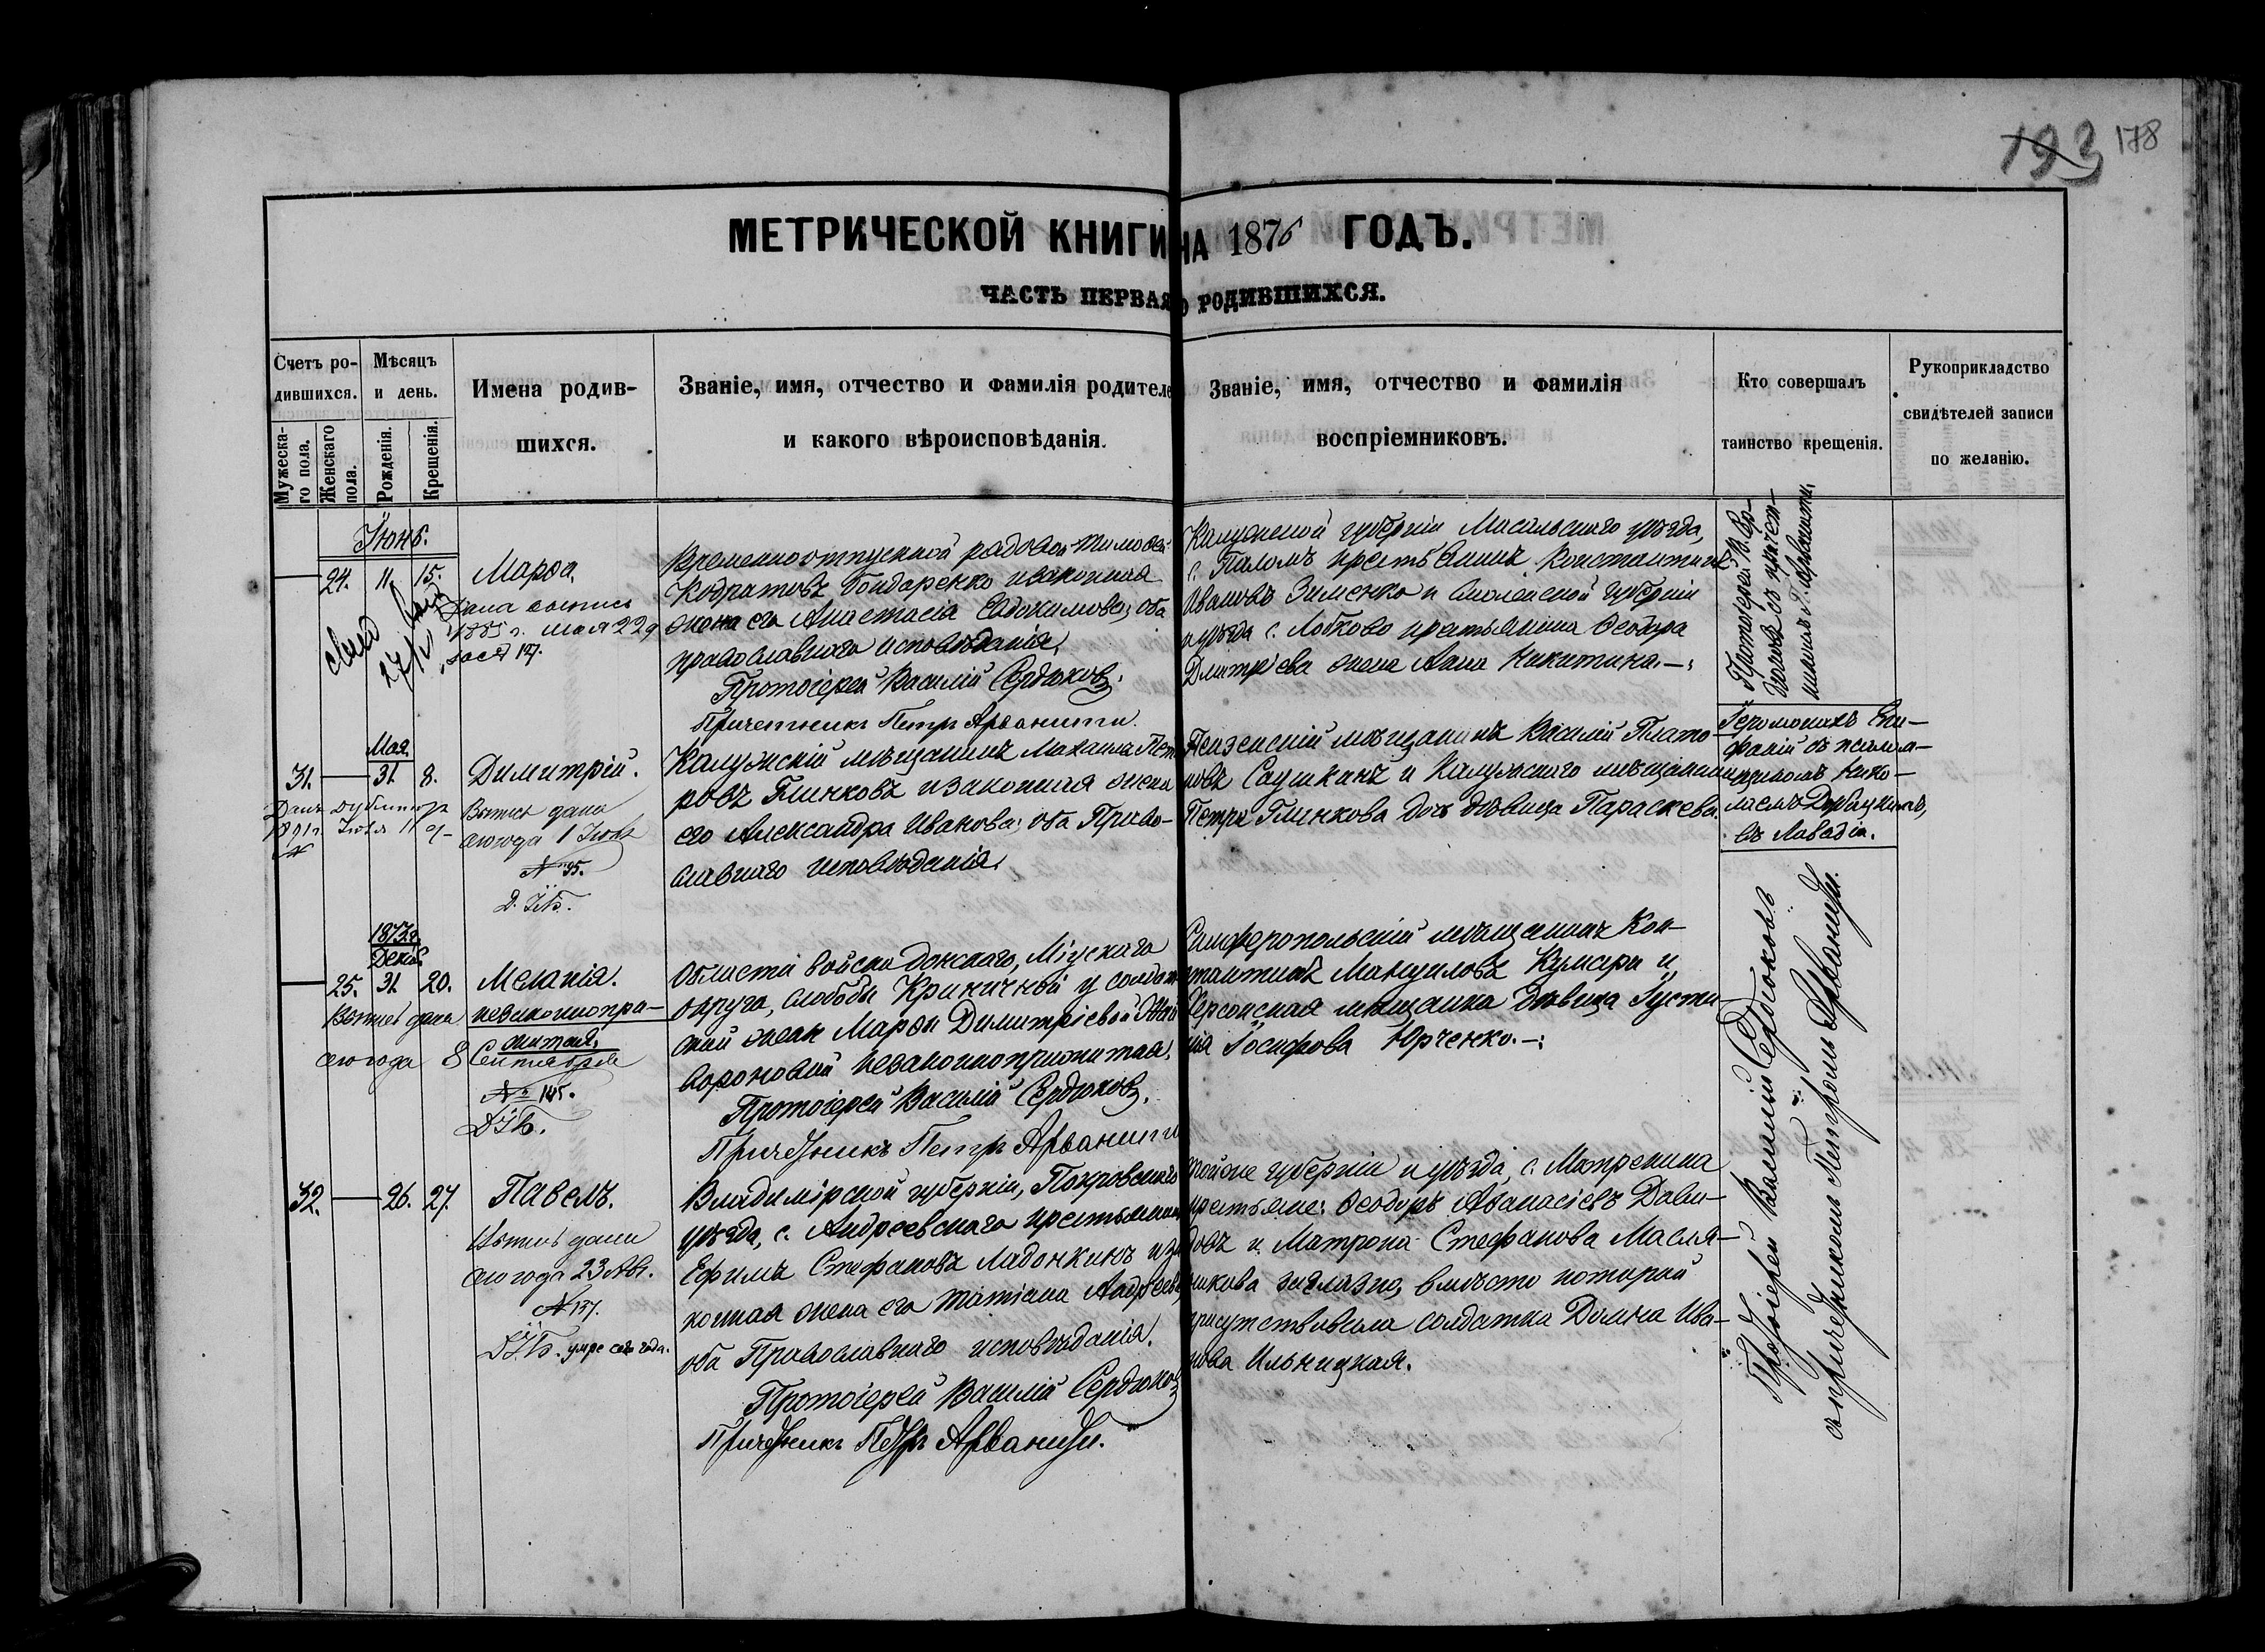 193 178
МЕТРИЧЕСКОЙ КНИГИ НА 1876 ГОДЪ.
ЧАСТЬ ПЕРВАЯ О РОДИВШИХСЯ.
Счетъ ро-
дившихся.
Мужеска-
го пола.
Женскаго
пола.
Мѣсяцъ
и день.
Рожденія.
Крещенія.
Имена родив-
шихся.
Званіе, имя, отчество и фамилія родителе
и какого вѣроисповѣданія.
Званіе, имя, отчество и фамилія
воспріемниковъ.
Кто совершалъ
таинство крещенія.
Рукоприкладство
свидѣтелей записи
по желанію.
Іюнь.
24. 11. 15.
Марѳа,
Дана выпись
1885 г. мая 22
Временноотпускной рядовой Тимоѳей
Кодратовъ Бондаренко и законная
жена его Анастасія Евдокимова; оба
православнаго исповѣданія,
Протоіерей Василій Сердюковъ.
Причетникъ Петръ Арванити.
Калужской губерніи, Масальскаго уѣзда,
с. Паломъ крестьянинъ Константинъ
Ивановъ Зименко и Смоленской губерніи
и уѣзда с. Лобково крестьянина Ѳеодора
Дмитріева жена Анна Никитина.—:
Протоіерей В. Сер-
дюковъ съ причет-
никомъ П. Арванити.
Мая
31. 31. 8.
Димитрій.
Выпись дана
сего года 1 Іюля
№ 95.
Калужскій мѣщанинъ Михаилъ Пет
ровъ Глинковъ и законная жена
его Александра Иванова; оба Право-
славнаго исповѣданія.
Пензенскій мѣщанинъ Василій Плато
новъ Саушкинъ и Калужскаго мѣщанина
Петра Глинкова дочь дѣвица Параскева.
Іеромонахъ Епи-
фаній съ псалом-
щикомъ Нико-
лаемъ
въ Ливадіи.
1873 г.
Декаб.
25. 31. 20.
Меланія.
незаконнопри-
житая,
Выпись дана
сего года 8 Сентября
№ 145.
Области войска донскаго, Міускаго
округа, слободы Криничной у солдат
ской жены Марѳы Димитріевой
вороновой незаконноприжитая.
Протоіерей Василій Сердюковъ.
Причетникъ Петръ Арванити
Симферопольскій мѣщанинъ Кон-
стантинъ Мануиловъ Кумсари и
Херсонская мѣщанка дѣвица Густи
нія Іосифова Юрченко.—:
32. 26. 27.
Павелъ.
Выпись дана
сего года 23 Авг.
№ 137.
умре сего года.
Владимірской губерніи, Покровскаго
уѣзда, с. Андреевскаго крестьянинъ
Ефимъ Стефановъ Ладонкинъ и за
конная жена его Татіана Андреева,
оба Православнаго исповѣданія.
Протоіерей Василій Сердюковъ
Причетникъ Петръ Арванити.
губерніи и уѣзда, с. Матренина
крестьяне: Ѳеодоръ Аѳанасіевъ Дави-
довъ и Матрона Стефанова Масля-
никова заглазно, вмѣсто которой
присутствовала солдатка Домна Ива-
нова Ильницкая.
Протоіерей Василій Сердюковъ
съ причетникомъ Петромъ Арванити.